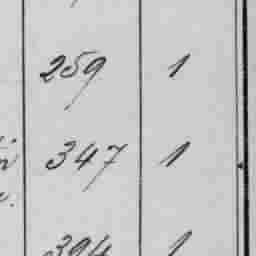 259 1
347 1
394 1